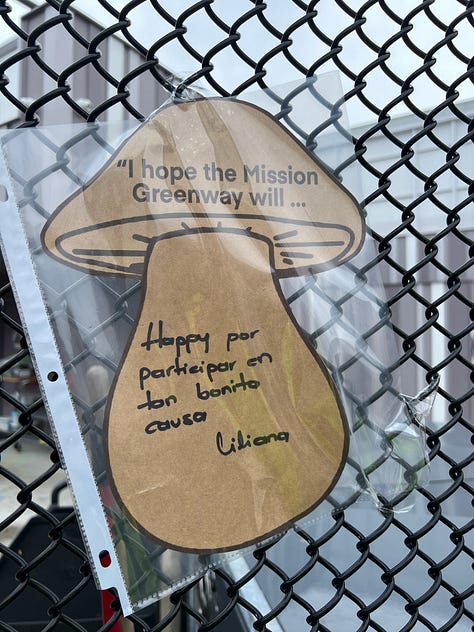 "I hope the Mission
Greenway will ...
Happy por
participar en
tan bonito
causa
Liliana